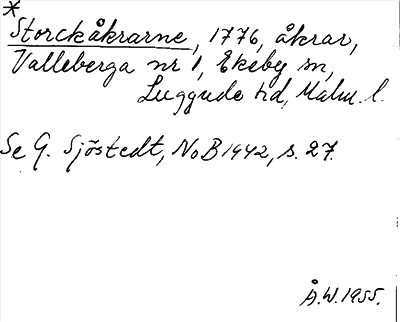 *
Storckåkrarne, 1776, åkrar,
Valleberga nr 1, Ekeby sn,
Luggude hd, Malm. l.
Se G. Sjöstedt, NoB 1942, s. 27.
Å.W. 1955.